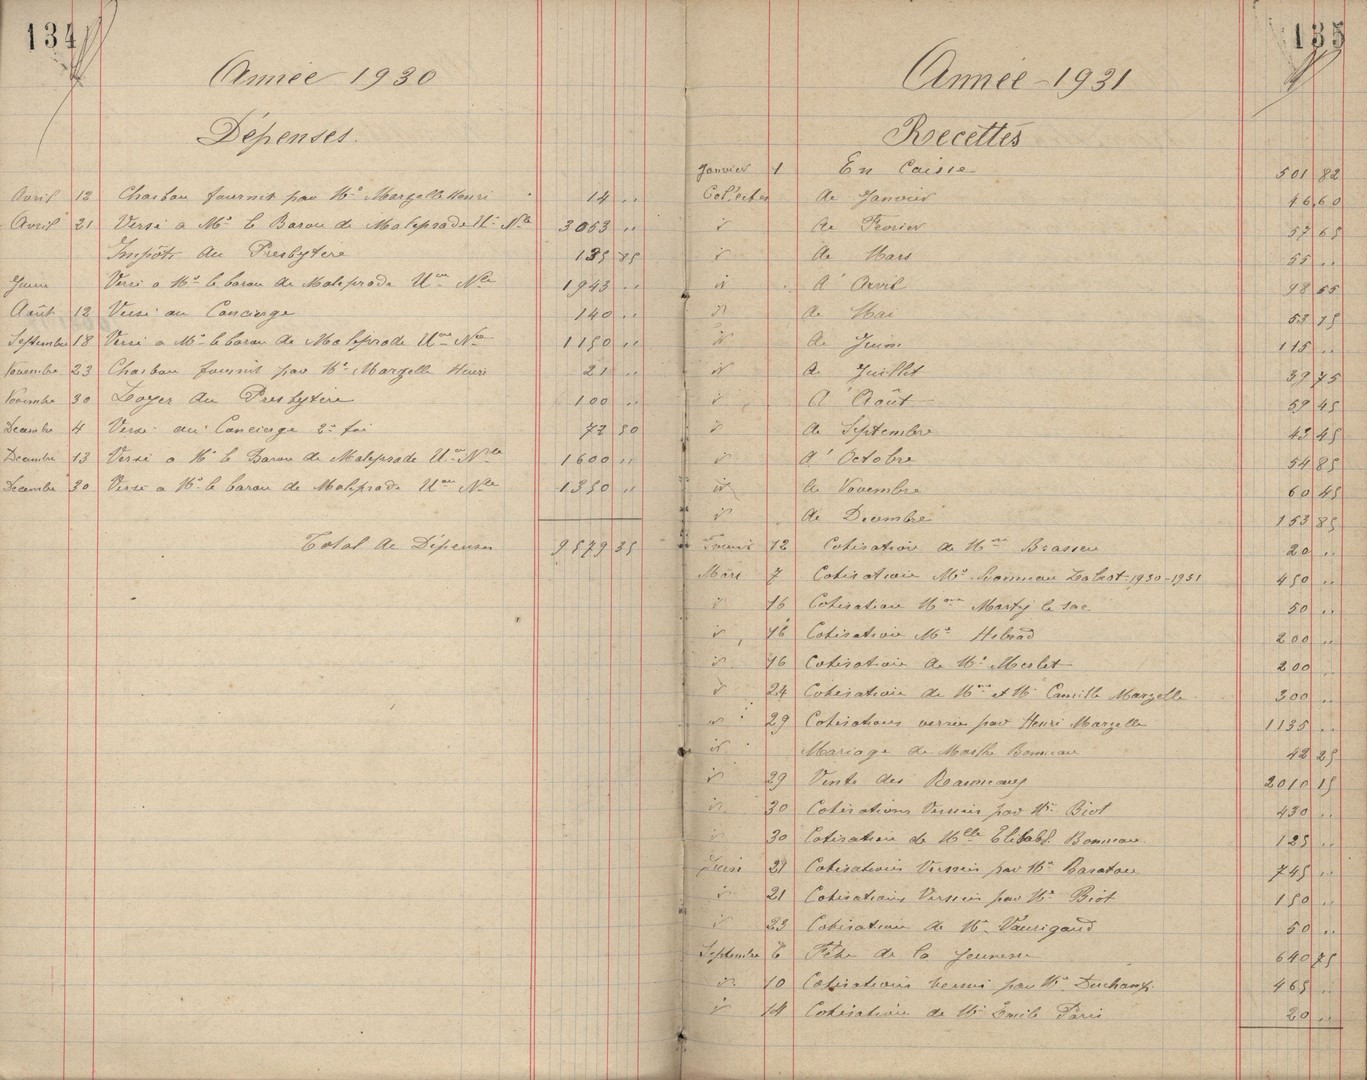 134
Année 1930
Dépenses.
Avril 12 Charbon fournit par Mr Margelle Henri 14 "
Avril 21 Versé a Mr le Baron de Maleprade Uon Nle 3063 "
Impôts du Presbytère 135 75
Juin Versé a Mr le baron de Maleprade Uon Nle 1943 "
Août 12 Versé au Concierge 140 "
Septembre 18 Versé a Mr le baron de Maleprade Uon Nle 1150 "
Novembre 23 Charbon fournit par Mr Margelle Henri 21 "
Novembre 30 Loyer du Presbytère 100 "
Decembre 4 Versé au Concierge 2e foi 72 50
Decembre 13 Versé a Mr le Baron de Maleprade Uon Nle 1600 "
Decembre 30 Versé a Mr le baron de Maleprade Uon Nle 1350 "
Total de Dépenses 9579 35
135
Année - 1931
Recettes
Janvier 1 En Caisse 501 82
Col'ectes de Janvier 46,60
" de Fevrier 57 65
" de Mars 55 "
" d'Avril 98 55
" de Mai 53 15
" de Juin 115 "
" de Juillet 39 75
" d'Août 59 45
" de Septembre 43 45
" d'Octobre 54 85
" de Novembre 60 45
" de Decembre 153 85
12 Cotisation de Mme 20 "
Mars 7 Cotisation Mr 1930-1931 450 "
" 16 Cotisation Mme Marty le sac 50 "
" 16 Cotisation Mr Hebrad 200 "
" 16 Cotisation de Mr Merlet 200 "
" 24 Cotisation de Mme et Mr Camille Margelle 300 "
" 29 Cotisations versée par Henri Margelle 1135 "
" Mariage de Marthe Bonneau 42 25
" 29 Vente des Rameaux 2010 15
" 30 Cotisations Versées par Mr Biot 430 "
" 30 Cotisation de Mlle Elibabt. Bonneau 125 "
Juin 21 Cotisations Versées par Mr Baratou 745 "
" 21 Cotisations Versées par Mr Biot 150 "
" 23 Cotisation de Mr Vaurigaud 50 "
Septembre 6 Fête de la Jeunesse 640 75
" 10 Cotisations versés par Mr Duchamp 465 "
" 14 Cotisation de Mr Emile Paris 20 "